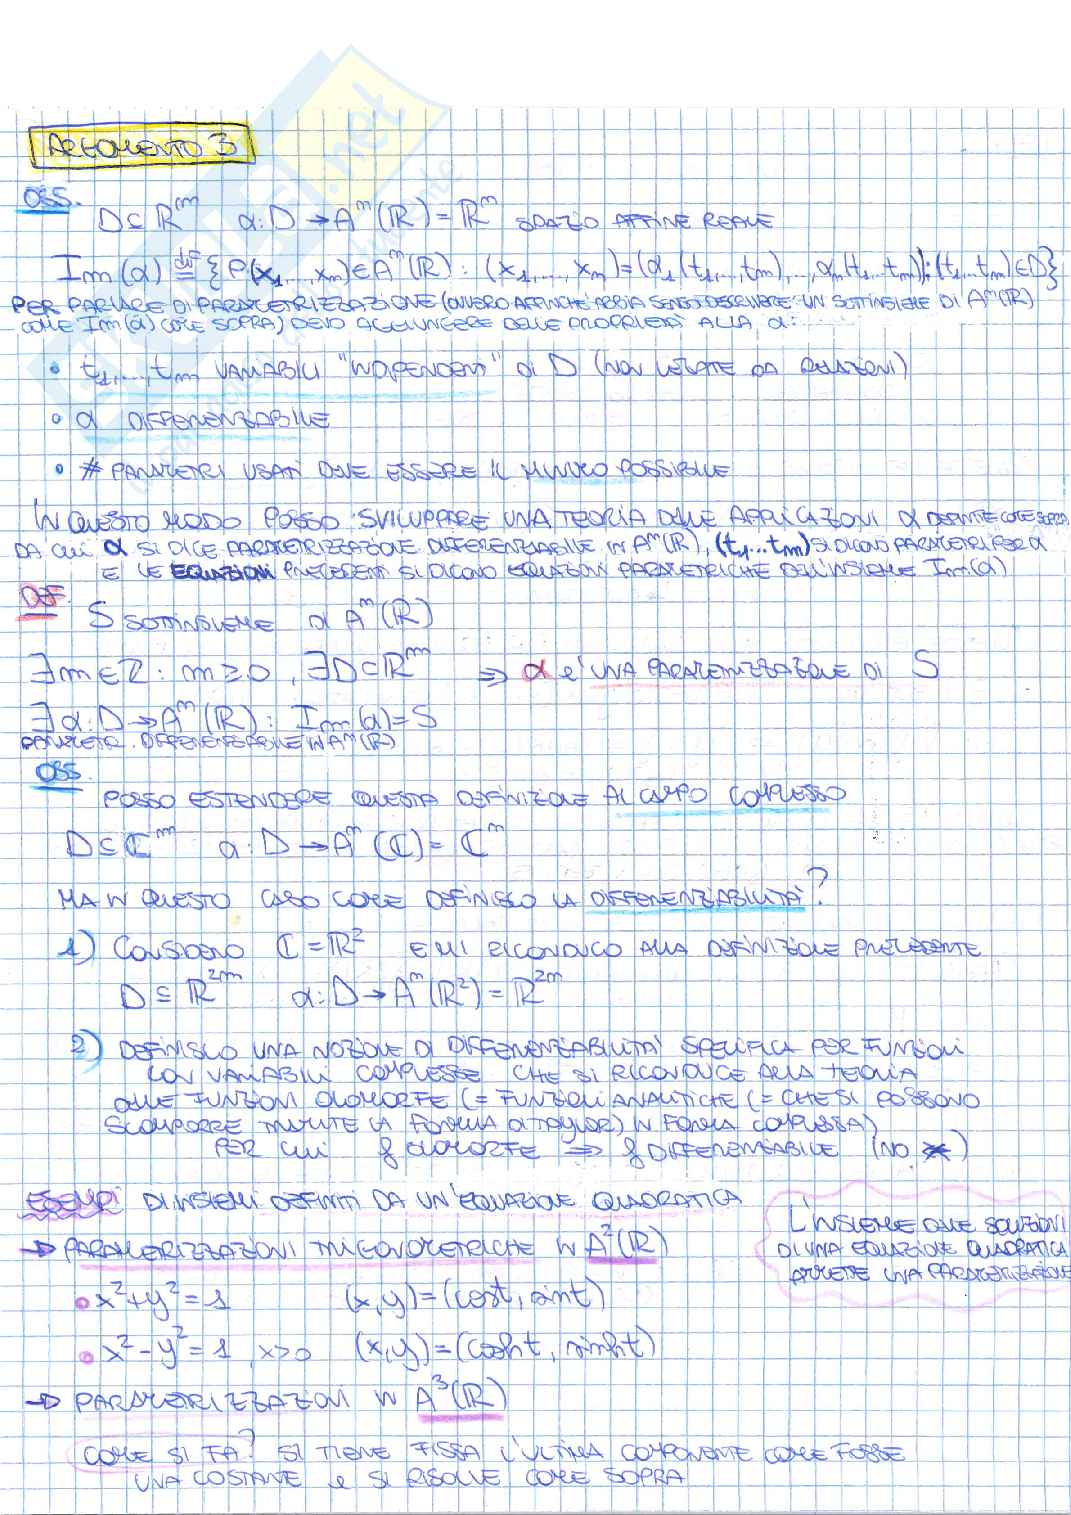 ARGOMENTO 3
OSS.
D ⊆ ℝᵐ α: D → Aⁿ(ℝ) = ℝⁿ SPAZIO AFFINE REALE
Im(α) ≝ {P(x₁,..., xₙ) ∈ Aⁿ(ℝ) : (x₁,..., xₙ) = (α₁(t₁,...tₘ),..., αₙ(t₁...tₘ)); (t₁...tₘ) ∈ D}
PER PARLARE DI PARAMETRIZZAZIONE (OVVERO AFFINCHÈ ABBIA SENSO DESCRIVERE UN SOTTINSIEME DI Aⁿ(ℝ)
COME Im(α) COME SOPRA) DEVO AGGIUNGERE DELLE PROPRIETÀ ALLA α:
• t₁,..., tₘ VARIABILI "INDIPENDENTI" DI D (NON LEGATE DA RELAZIONI)
• α DIFFERENZIABILE
• # PARAMETRI USATI DEVE ESSERE IL MINIMO POSSIBILE
IN QUESTO MODO POSSO SVILUPPARE UNA TEORIA DELLE APPLICAZIONI α DEFINITE COME SOPRA,
DA CUI α SI DICE PARAMETRIZZAZIONE DIFFERENZIABILE IN Aⁿ(ℝ), (t₁...tₘ) SI DICONO PARAMETRI PER α
E LE EQUAZIONI PRECEDENTI SI DICONO EQUAZIONI PARAMETRICHE DELL'INSIEME Im(α)
DEF.
S SOTTINSIEME DI Aⁿ(ℝ)
∃ m ∈ ℤ : m ≥ 0, ∃ D ⊂ ℝᵐ ⇒ α è UNA PARAMETRIZZAZIONE DI S
∃ α: D → Aⁿ(ℝ) : Im(α) = S
PARAMETR. DIFFERENZIABILE IN Aⁿ(ℝ)
OSS.
POSSO ESTENDERE QUESTA DEFINIZIONE AL CAMPO COMPLESSO
D ⊆ ℂᵐ α: D → Aⁿ(ℂ) = ℂⁿ
MA IN QUESTO CASO COME DEFINISCO LA DIFFERENZIABILITÀ?
1) CONSIDERO ℂ = ℝ² E MI RICONDUCO ALLA DEFINIZIONE PRECEDENTE
D ⊆ ℝ²ᵐ α: D → Aⁿ(ℝ²) = ℝ²ⁿ
2) DEFINISCO UNA NOZIONE DI DIFFERENZIABILITÀ SPECIFICA PER FUNZIONI
CON VARIABILI COMPLESSE CHE SI RICONDUCE ALLA TEORIA
DELLE FUNZIONI OLOMORFE (= FUNZIONI ANALITICHE (= CHE SI POSSONO
SCOMPORRE TRAMITE LA FORMULA DI TAYLOR) IN FORMA COMPLESSA)
PER CUI f OLOMORFE ⇒ f DIFFERENZIABILE (NO ⇐)
ESEMPI DI INSIEMI DEFINITI DA UN'EQUAZIONE QUADRATICA
L'INSIEME DELLE SOLUZIONI
DI UNA EQUAZIONE QUADRATICA
AMMETTE UNA PARAMETRIZZAZIONE
→ PARAMETRIZZAZIONI TRIGONOMETRICHE IN A²(ℝ)
• x²+y²=1 (x,y)=(cost, sint)
• x²-y²=1, x>0 (x,y)=(cosht, sinht)
→ PARAMETRIZZAZIONI IN A³(ℝ)
COME SI FA? SI TIENE FISSA L'ULTIMA COMPONENTE COME FOSSE
UNA COSTANTE e SI RISOLVE COME SOPRA